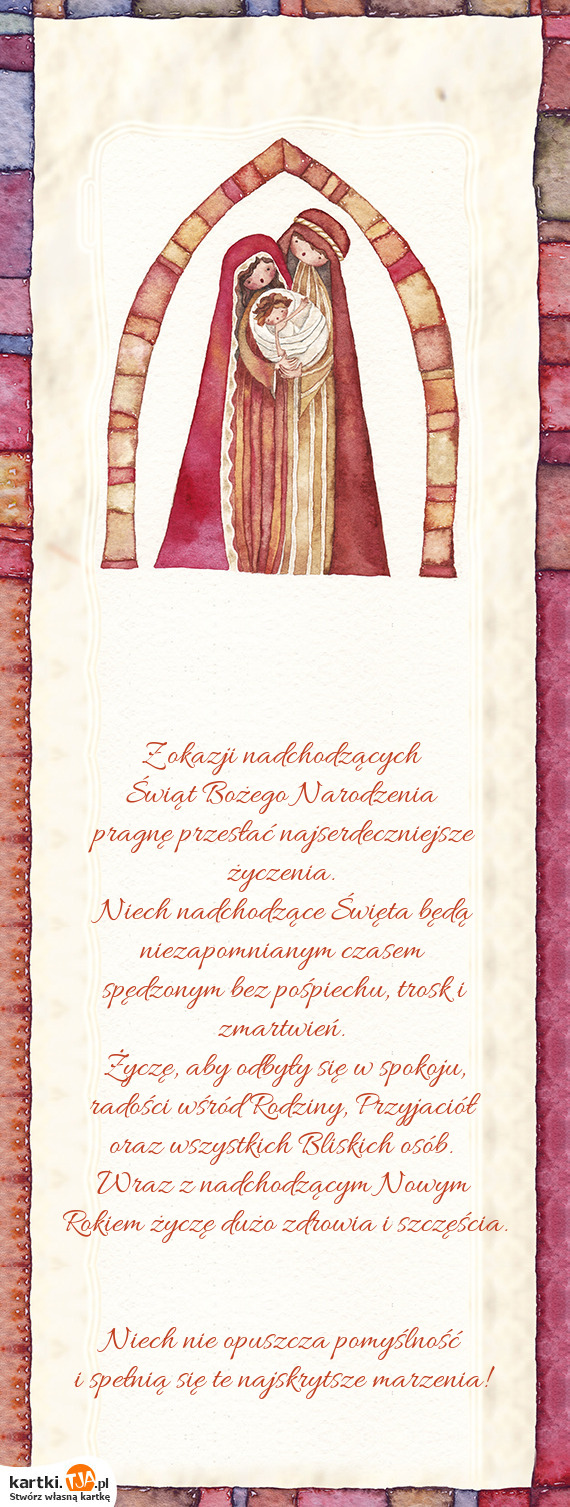 Z okazji nadchodzących
Świąt Bożego Narodzenia
pragnę przesłać najserdeczniejsze
życzenia.
Niech nadchodzące Święta będą
niezapomnianym czasem
spędzonym bez pośpiechu, trosk i
zmartwień.
Życzę, aby odbyły się w spokoju,
radości wśród Rodziny, Przyjaciół
oraz wszystkich Bliskich osób.
Wraz z nadchodzącym Nowym
Rokiem życzę dużo zdrowia i szczęścia.
Niech nie opuszcza pomyślność
i spełnią się te najskrytsze marzenia!
kartki.TJA.pl
Stwórz własną kartkę